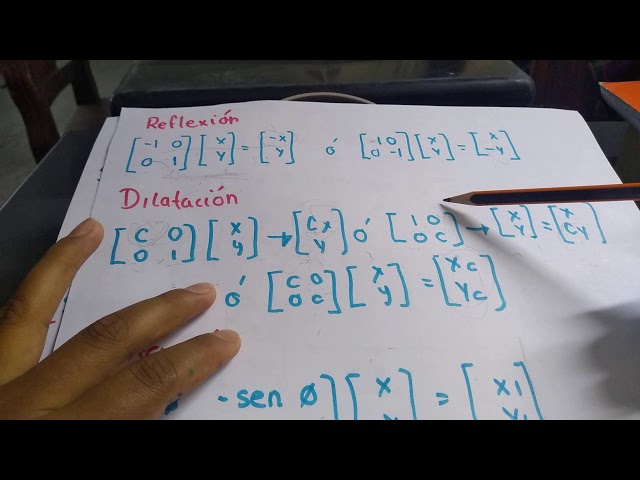 Reflexión
[-1 0 0 1] [x y] = [-x y] ó [-1 0 0 -1] [x y] = [x -y]
Dilatación
[c 0 0 1] [x y] → [cx y] ó [1 0 0 c] → [x y] = [x cy]
ó [c 0 0 c] [x y] = [xc yc]
-sen ø] [x = [x1 y1